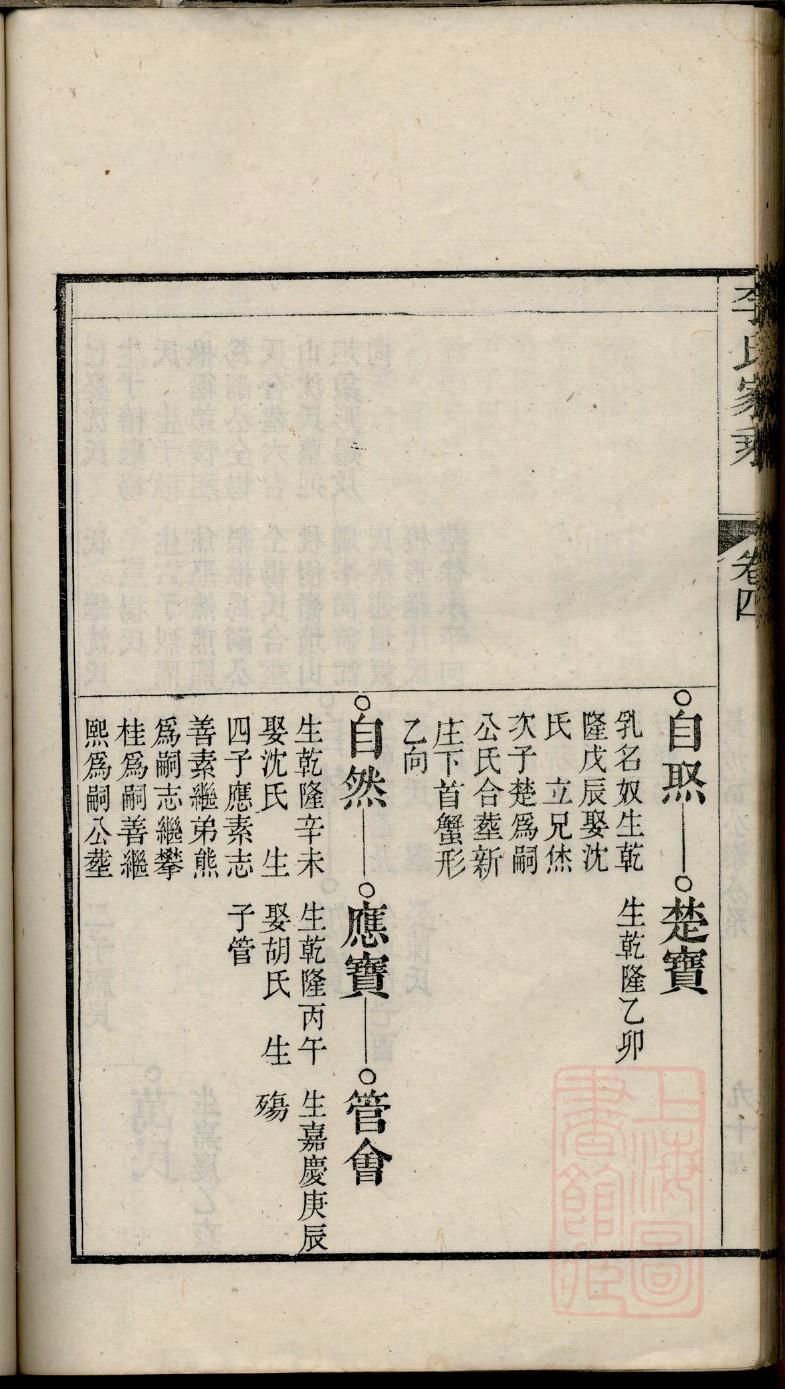 李氏家乘
卷四
自炁
乳名奴生乾
隆戊辰娶沈
氏　立兄烋
次子楚爲嗣
公氏合塟新
庄下首蟹形
乙向
楚寶
生乾隆乙卯
自然
生乾隆辛未
娶沈氏　生
四子應素志
善素繼弟熊
爲嗣志繼攀
桂爲嗣善繼
熙爲嗣公塟
應寶
生乾隆丙午
娶胡氏　生
子管
管會
生嘉慶庚辰
殤
上海圖
書館藏